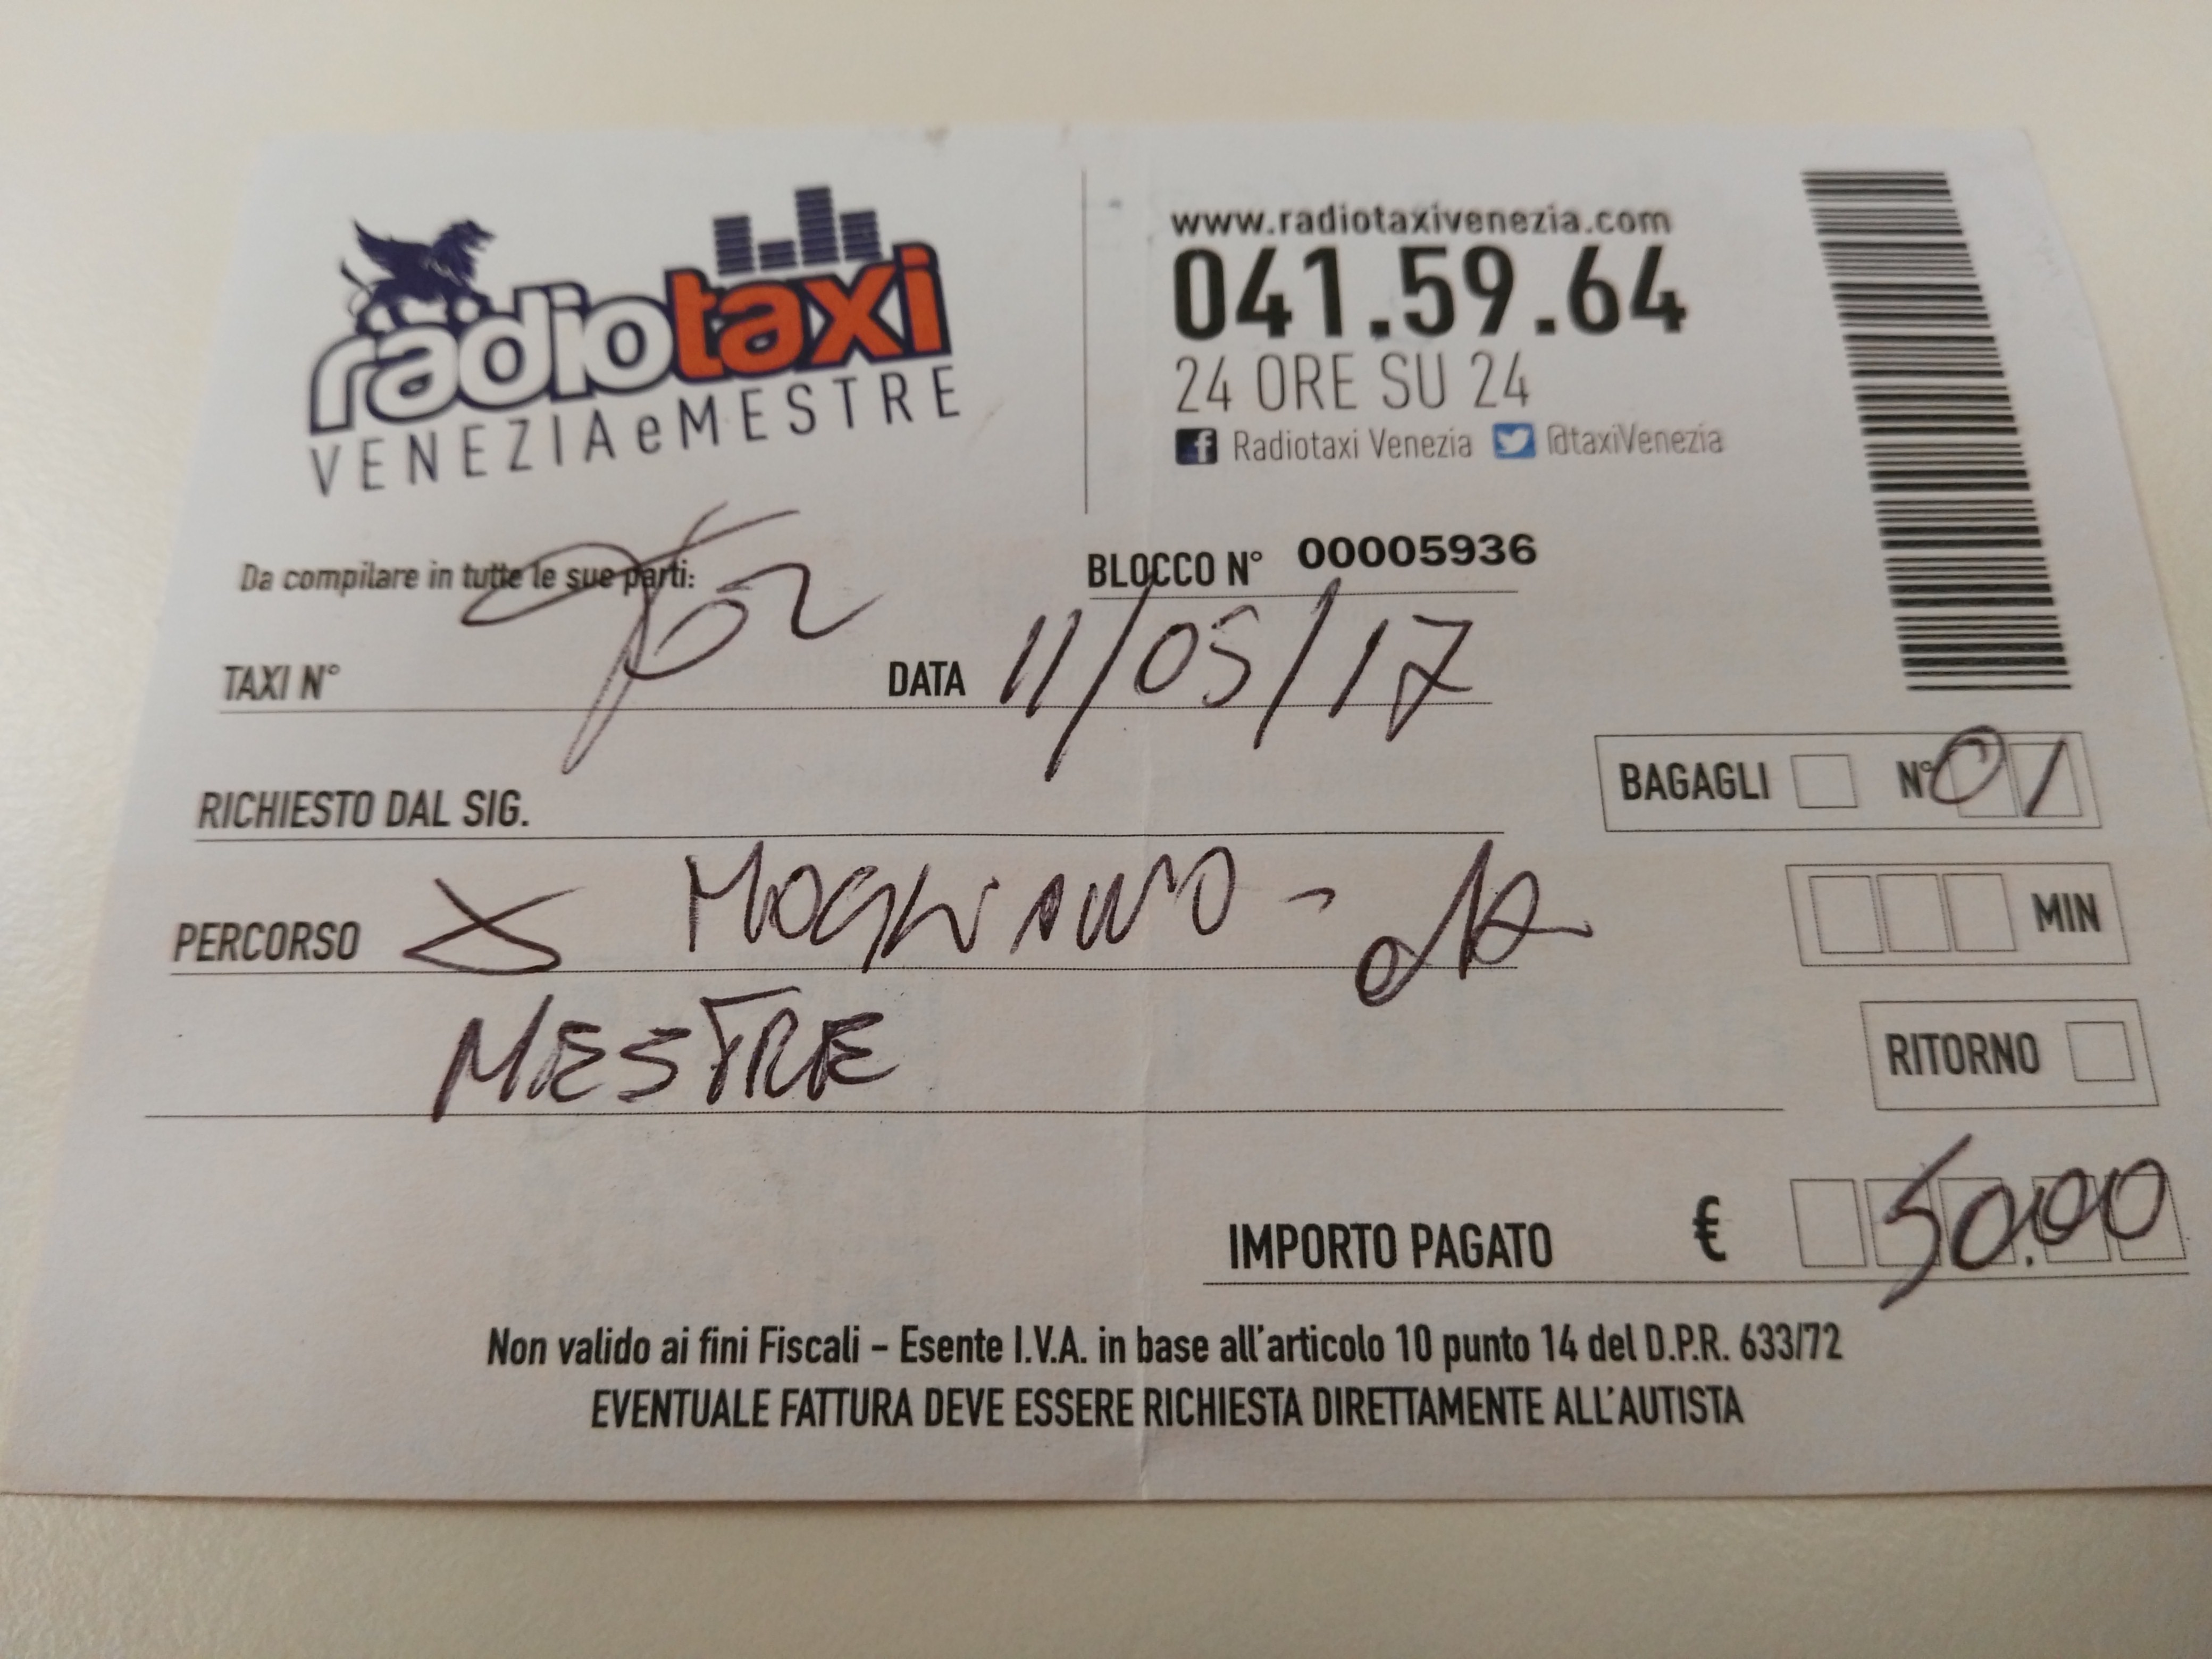 radiotaxi
VENEZIA e MESTRE
www.radiotaxivenezia.com
041.59.64
24 ORE SU 24
Radiotaxi Venezia @taxiVenezia
Da compilare in tutte le sue parti:
BLOCCO N° 00005936
TAXI N° DATA 11/05/17
RICHIESTO DAL SIG.
BAGAGLI N° 01
PERCORSO X MOGLIANO - da
MIN
MESTRE
RITORNO
IMPORTO PAGATO € 50.00
Non valido ai fini Fiscali – Esente I.V.A. in base all'articolo 10 punto 14 del D.P.R. 633/72
EVENTUALE FATTURA DEVE ESSERE RICHIESTA DIRETTAMENTE ALL'AUTISTA